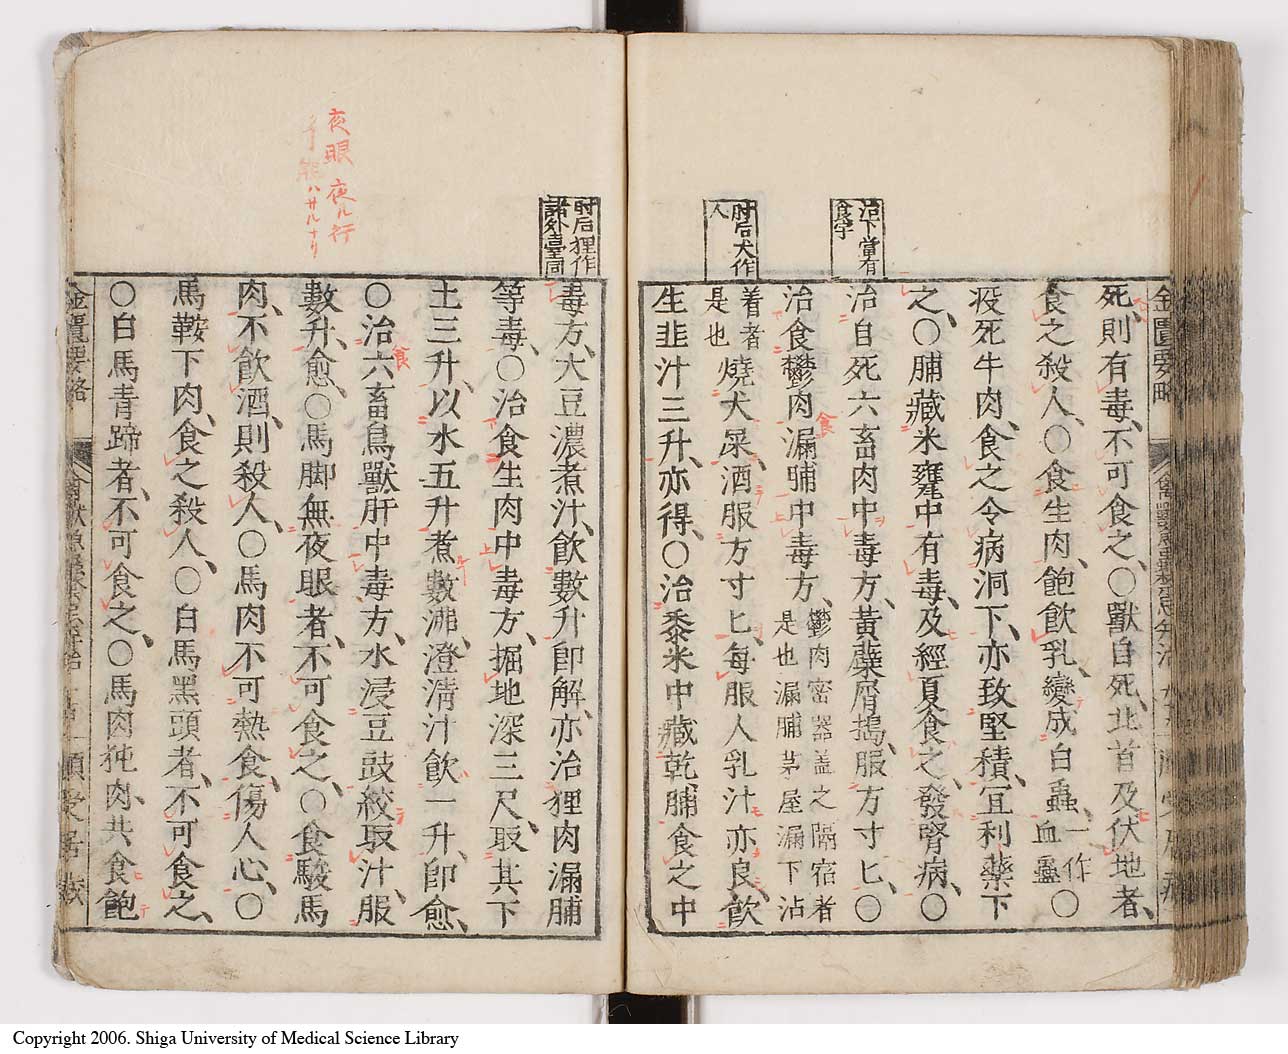 治下當有
食字
肘后犬作
人
死、則有毒、不可食之、○獸自死、北首及伏地者、
食之殺人、○食生肉、飽飲乳、變成白蟲、一作血蠱○
疫死牛肉、食之令病洞下、亦致堅積、宜利藥下
之、○脯藏米甕中有毒、及經夏食之、發腎病、○
治自死六畜肉中毒方、黃蘗屑搗、服方寸匕、○
治食鬱肉漏脯中毒方、鬱肉密器盖之隔宿者是也漏脯茅屋漏下沾
着者是也燒犬屎酒服方寸匕、每服人乳汁亦良、飲
生韭汁三升、亦得、○治黍米中藏乾脯食之中
肘后狸作
諸外臺同
夜眼 夜ル行
ハサルナリ
毒方、大豆濃煮汁、飲數升卽解、亦治狸肉漏脯
等毒、○治食生肉中毒方、掘地深三尺、取其下
土三升、以水五升煮數沸、澄清汁飲一升、卽愈、
○治六畜鳥獸肝中毒方、水浸豆豉絞取汁、服
食
數升、愈、○馬脚無夜眼者、不可食之、○食駿馬
肉、不飲酒、則殺人、○馬肉不可熱食、傷人心、○
馬鞍下肉、食之殺人、○白馬黑頭者、不可食之、
○白馬青蹄者、不可食之、○馬肉㹠肉、共食飽
金匱要略